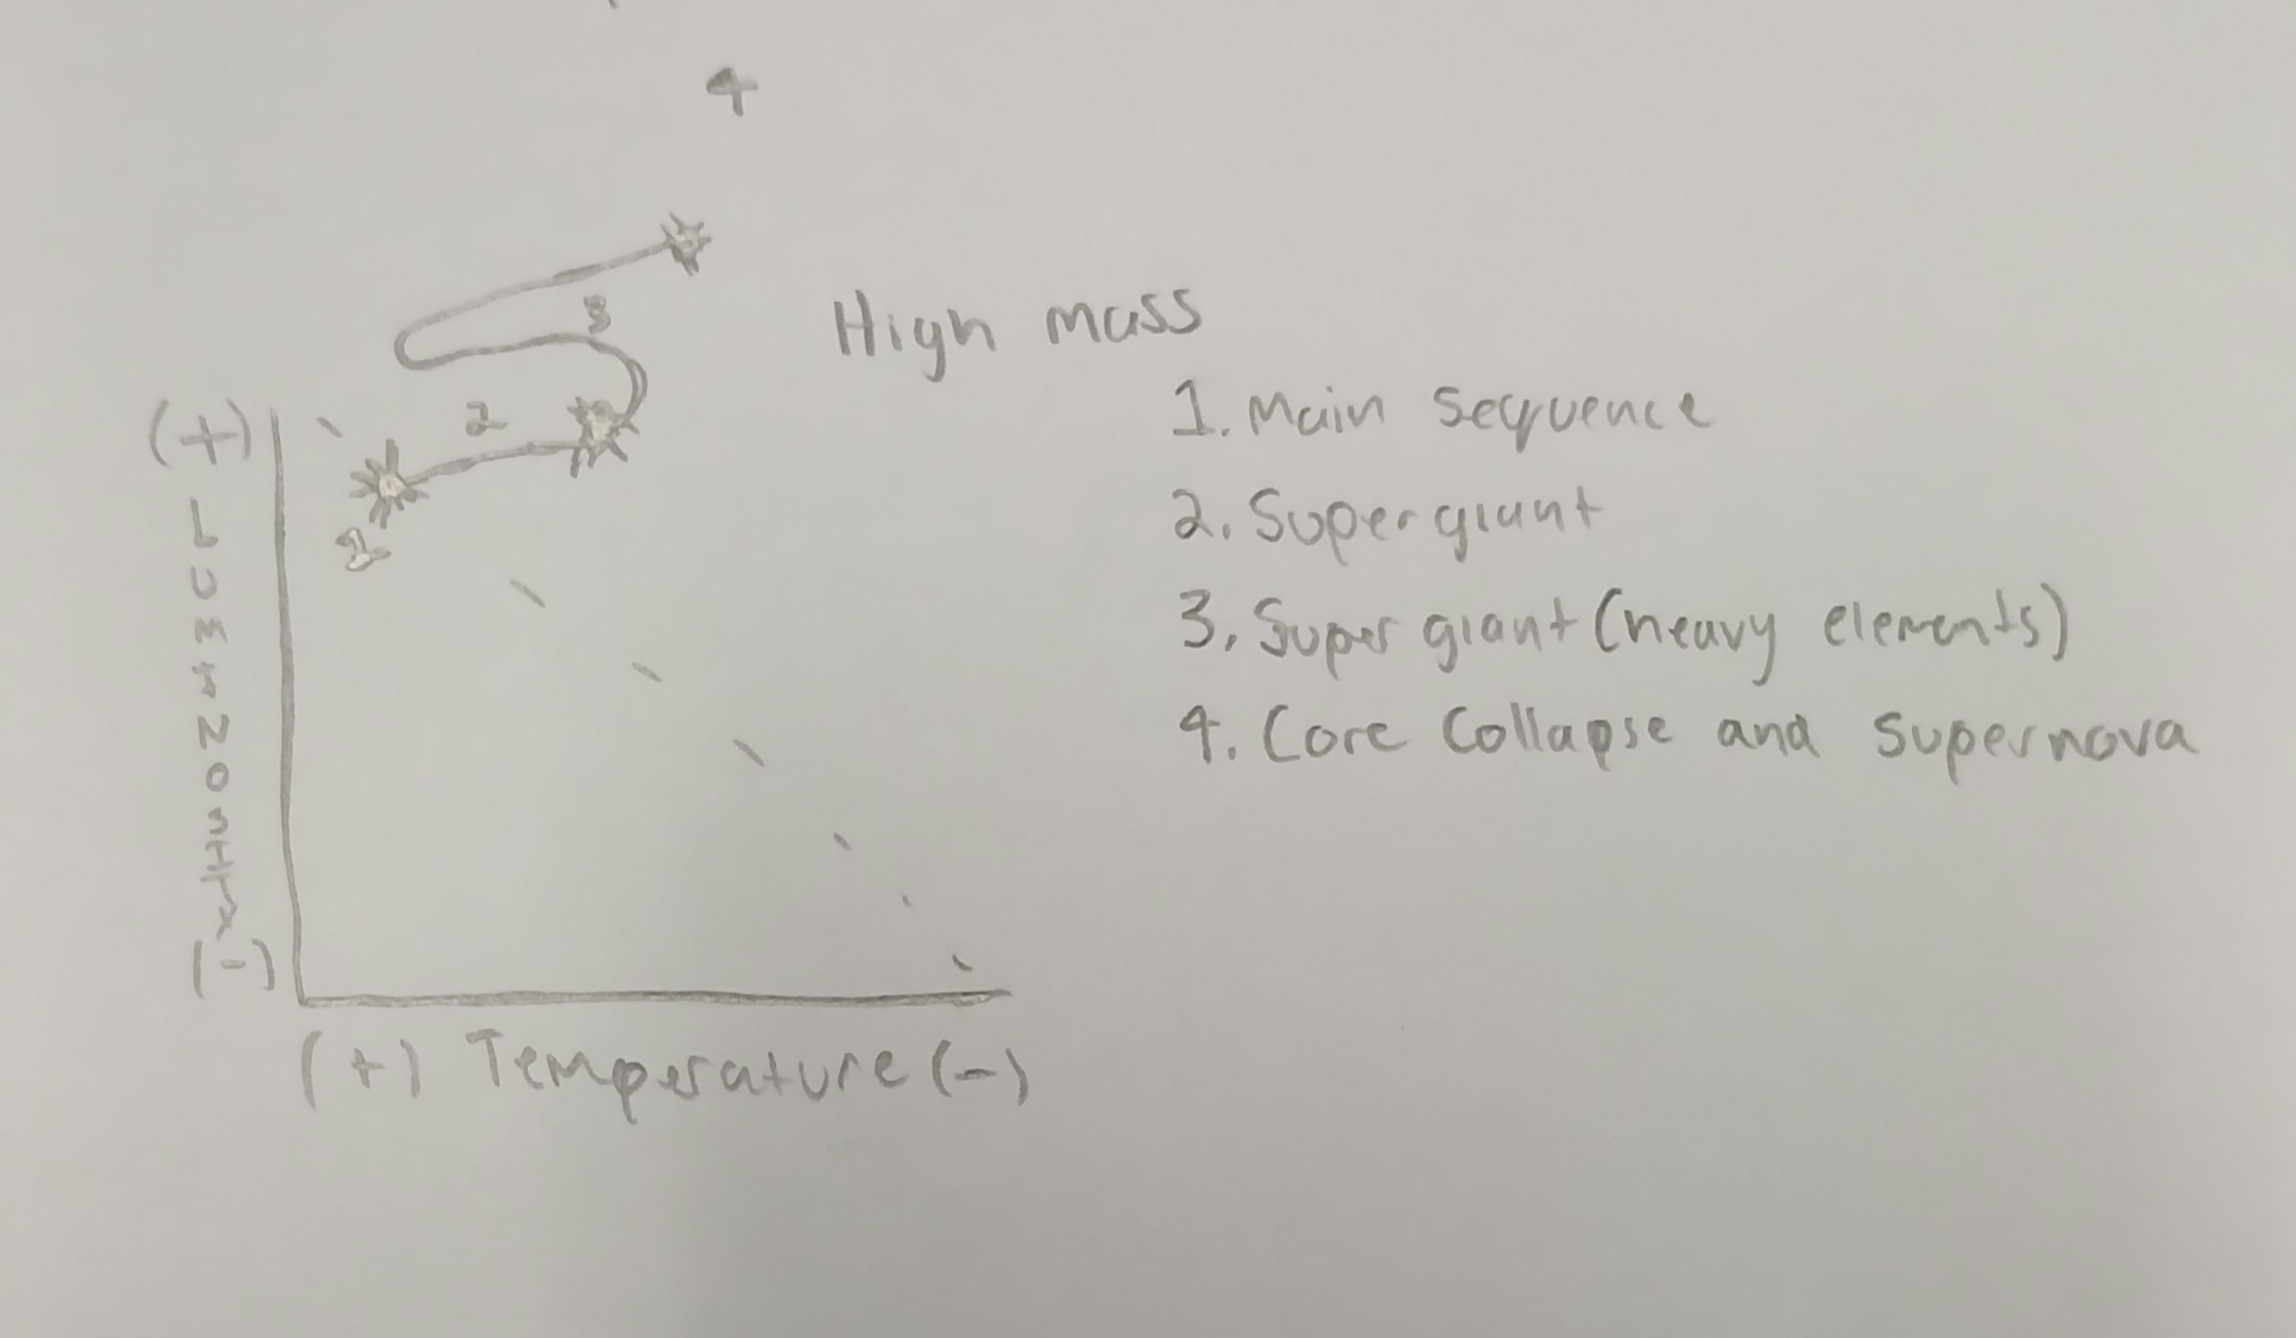 4
3
High mass
1. Main sequence
2. Supergiant
3. Super giant (heavy elements)
4. Core Collapse and supernova
2
(+)
LUMINOSITY
(-)
(+) Temperature (-)